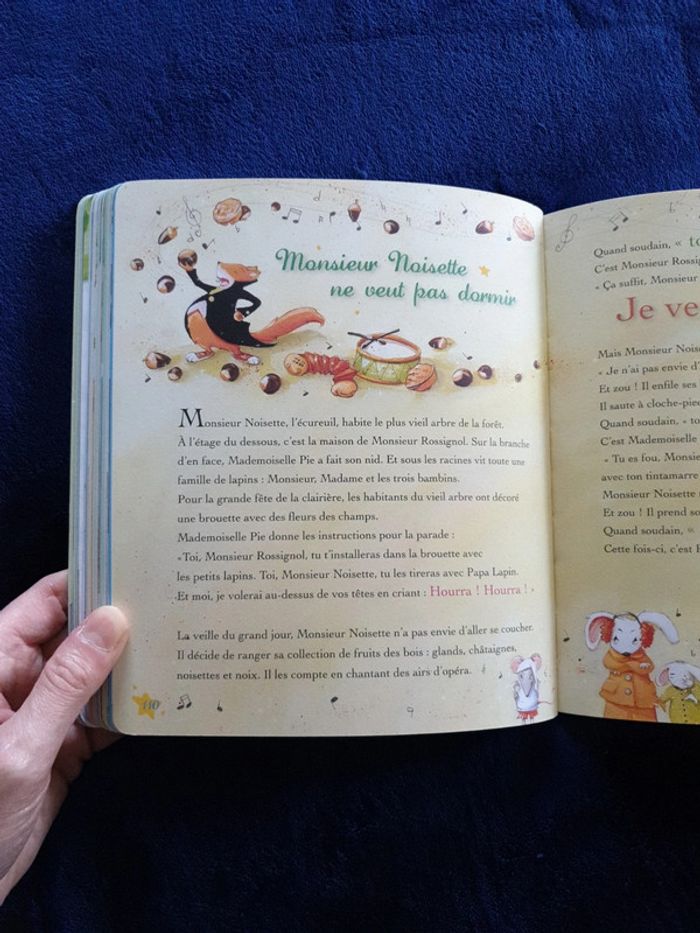 Monsieur Noisette
ne veut pas dormir
Monsieur Noisette, l'écureuil, habite le plus vieil arbre de la forêt.
À l'étage du dessous, c'est la maison de Monsieur Rossignol. Sur la branche
d'en face, Mademoiselle Pie a fait son nid. Et sous les racines vit toute une
famille de lapins : Monsieur, Madame et les trois bambins.
Pour la grande fête de la clairière, les habitants du vieil arbre ont décoré
une brouette avec des fleurs des champs.
Mademoiselle Pie donne les instructions pour la parade :
« Toi, Monsieur Rossignol, tu t'installeras dans la brouette avec
les petits lapins. Toi, Monsieur Noisette, tu les tireras avec Papa Lapin.
Et moi, je volerai au-dessus de vos têtes en criant : Hourra ! Hourra ! »
La veille du grand jour, Monsieur Noisette n'a pas envie d'aller se coucher.
Il décide de ranger sa collection de fruits des bois : glands, châtaignes,
noisettes et noix. Il les compte en chantant des airs d'opéra.
110
Quand soudain, « to
C'est Monsieur Rossig
« Ça suffit, Monsieur
Je ve
Mais Monsieur Nois
« Je n'ai pas envie d'
Et zou ! Il enfile ses
Il saute à cloche-pie
Quand soudain, « to
C'est Mademoiselle
« Tu es fou, Monsie
avec ton tintamarre
Monsieur Noisette
Et zou ! Il prend so
Quand soudain, «
Cette fois-ci, c'est